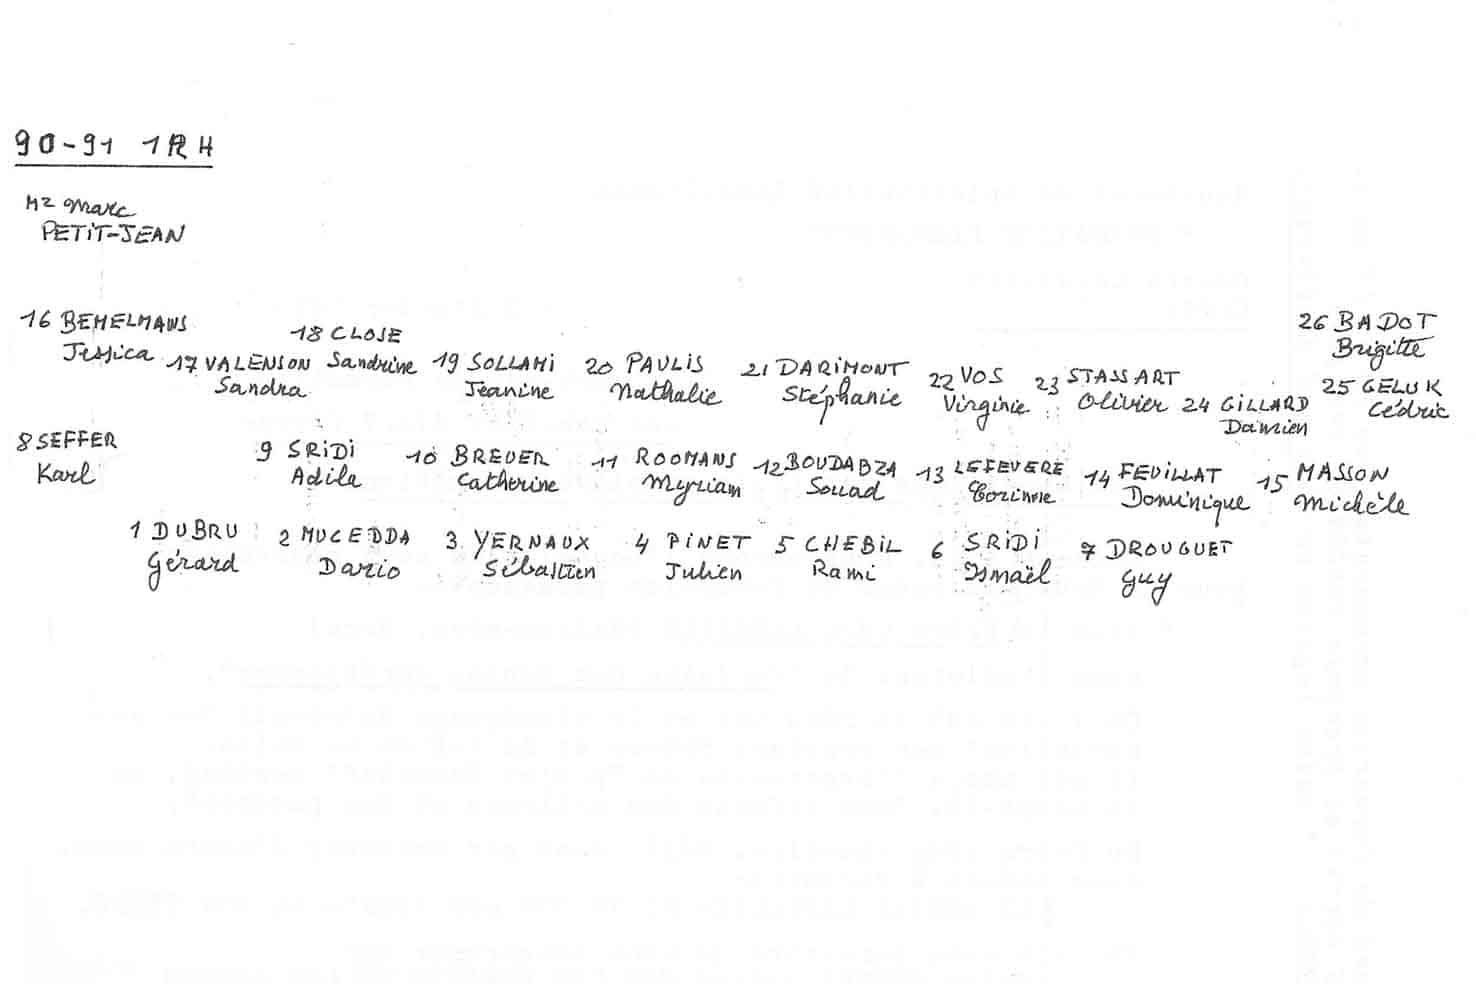 90-91 1RH
Mr Marc
PETIT-JEAN
16 BEMELMANS
Jessica
17 VALENSON
Sandra
18 CLOSE
Sandrine
19 SOLLAMI
Jeanine
20 PAULIS
Nathalie
21 DARIMONT
Stéphanie
22 VOS
Virginie
23 STASSART
Olivier
24 GILLARD
Damien
25 GELUK
Cédric
26 BADOT
Brigitte
8 SEFFER
Karl
9 SRIDI
Adila
10 BREUER
Catherine
11 ROOMANS
Myriam
12 BOUDABZA
Souad
13 LEFEVERE
Corinne
14 FEUILLAT
Dominique
15 MASSON
Michèle
1 DUBRU
Gérard
2 MUCEDDA
Dario
3 VERNAUX
Sébastien
4 PINET
Julien
5 CHEBIL
Rami
6 SRIDI
Ismaël
7 DROUGUET
Guy